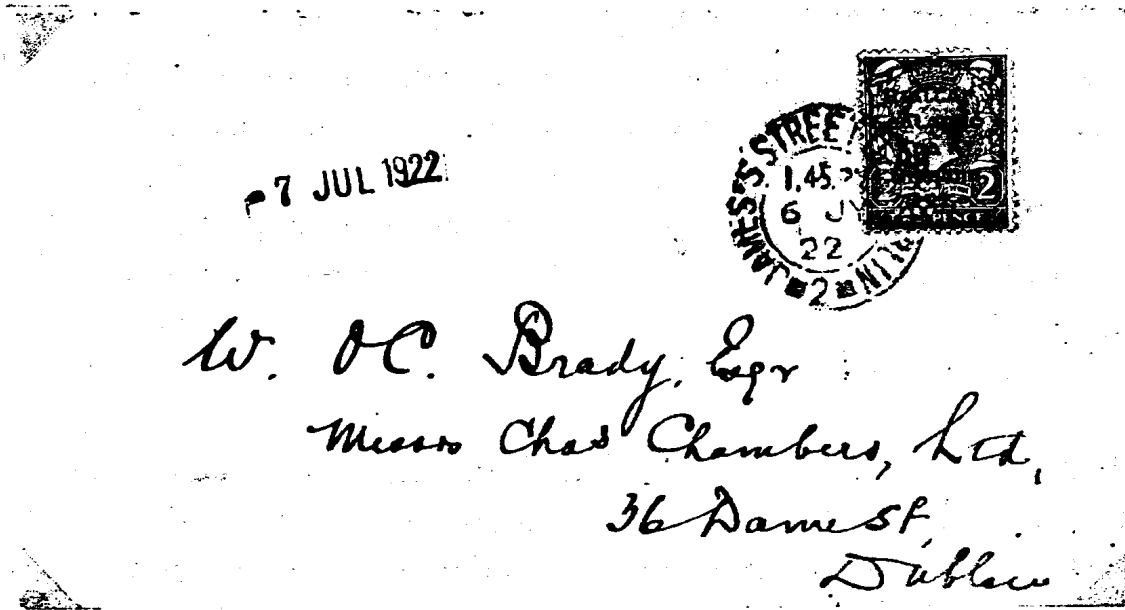 7 JUL 1922
JAMES'S STREET
1.45
6 JY
22
2
2 2
W. O'C. Brady, Esqr
Messrs Chas Chambers, Ltd,
36 Dame St,
Dublin